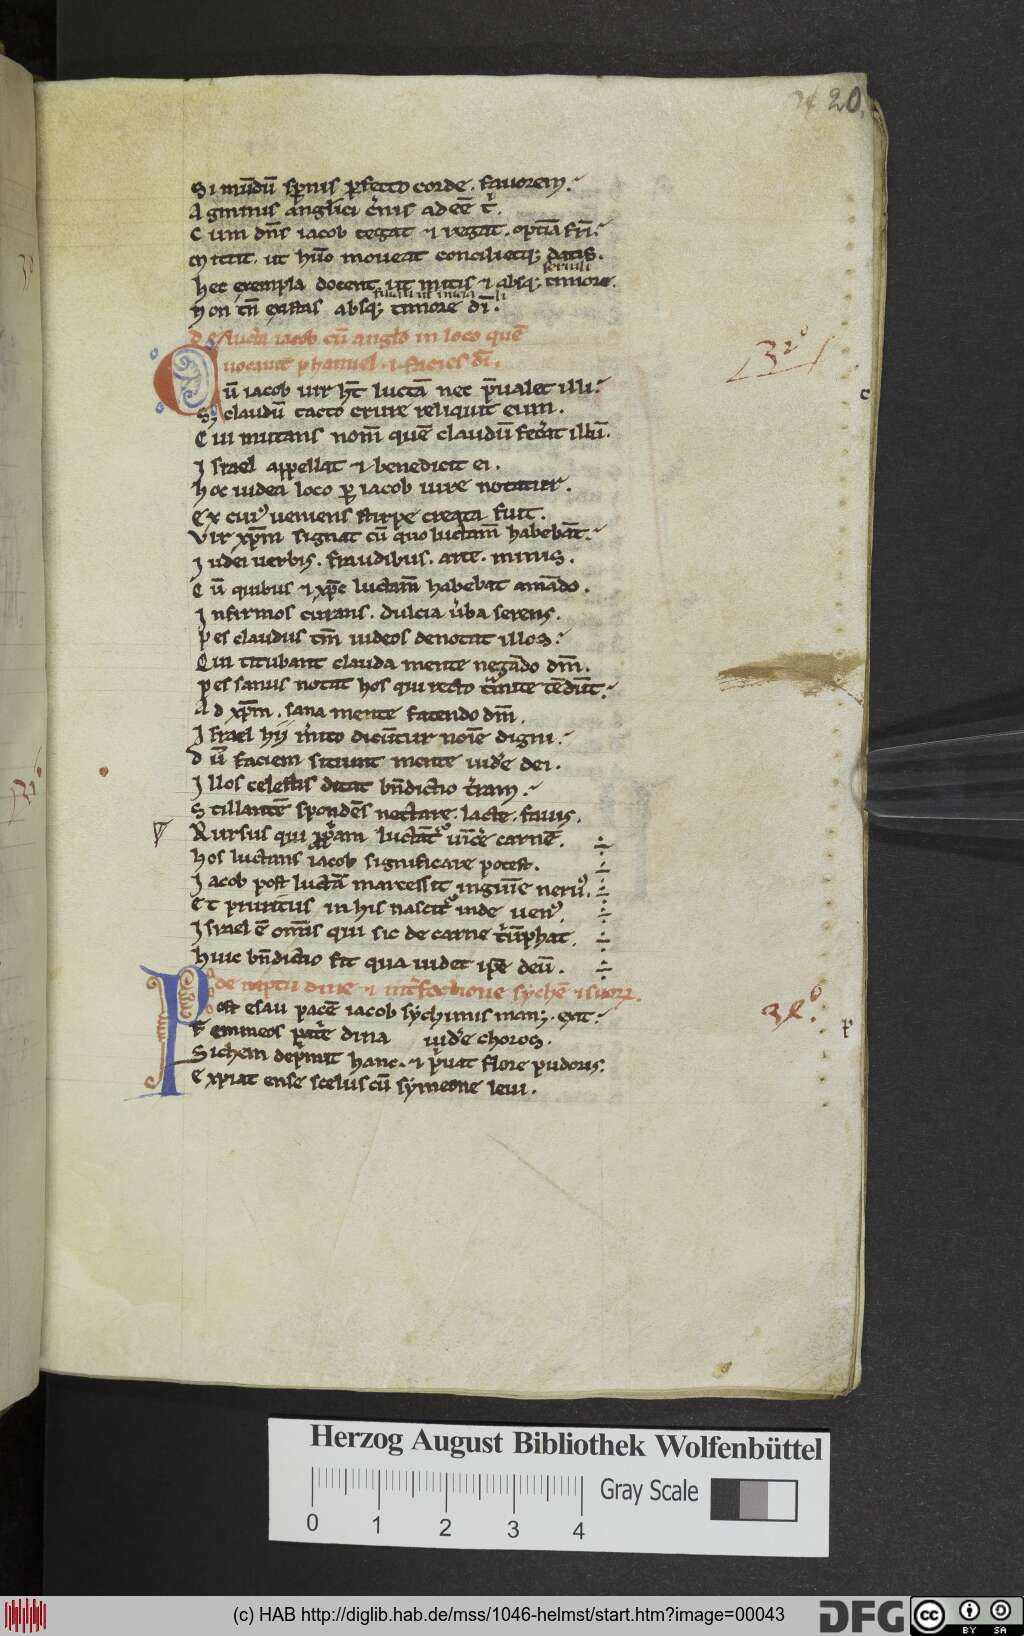 20
Si mūdū spnis pfecto corde. fauorem.
Agminis anglici c̄nis adeē t̄.
Cum dn̄s iacob tegat ⁊ regat. optīa fr̄i.
Mittit. ut hūo moueat concilietq; datis.
seruili
Hec exempla docent ut mitis ⁊ absq; timore.
filiali
Non tn̄ existas absq; timore dī.
De lucta iacob cū anglo in loco quē
uocauit phanuel. ⁊ facies dī.
Cū iacob uir hēt luctā nec p̄ualet illi.
Sꝫ claudū tacto crure reliquit eum.
Cui mutans nom̄ quē claudū fec̄at illū.
Israel appellat ⁊ benedicit ei.
Hoc iudea loco p iacob iure notatur.
Ex cui᷒ ueniens stirpe creata fuit.
Vir xp̄m signat cū quo luctam̄ habebāt.
Iudei uerbis. fraudibus. arte. minis.
Cū quibus ⁊ xp̄c luctam̄ habebat amādo.
Infirmos curans. dulcia ūba serens.
Pes claudus tm̄ iudeos denotat illos.
Qui titubant clauda mente negādo dm̄.
Pes sanus notat hos qui recto t̄mite tēdūt.
Ad xp̄m. sana mente fatendo dm̄.
Israel hij m̄ito dicūtur noīe digni.
Dū faciem sitiunt mente uid̄e dei.
Illos celestis ditat bn̄dictio t̄ram.
Stillantē spondēs nectare. lacte. fauis.
Rursus qui ppam luctāt᷒ uīc̄e carnē.
Hos luctans iacob significare potest.
Iacob post luctā marcessit inguīe neru᷒.
Et pruritus in his nascit᷒ inde uen᷒.
Israel ē om̄is qui sic de carne t̄ūphat.
Huic bn̄dictio fit qua uidet ip̄e deū.
de raptu dine ⁊ int̄fectione sychē ⁊ suoꝝ.
Post esau pacē iacob sychimis manꝫ. exit.
Femineos pat̄e dina uid̄e choros.
Sichem dep̄mit hanc. ⁊ p̄uat flore pudoris.
Expiat ense scelus cū symeone leui.
32°
34°.
c
Herzog August Bibliothek Wolfenbüttel
0 1 2 3 4
Gray Scale
(c) HAB http://diglib.hab.de/mss/1046-helmst/start.htm?image=00043
DFG
cc BY SA